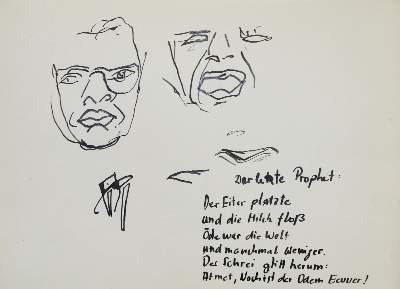 Der letzte Prophet:
Der Eiter platzte
und die Milch floß
Öde war die Welt
und manchmal weniger.
Der Schrei glitt herum:
Atmet, Noch ist der Odem Eurer!